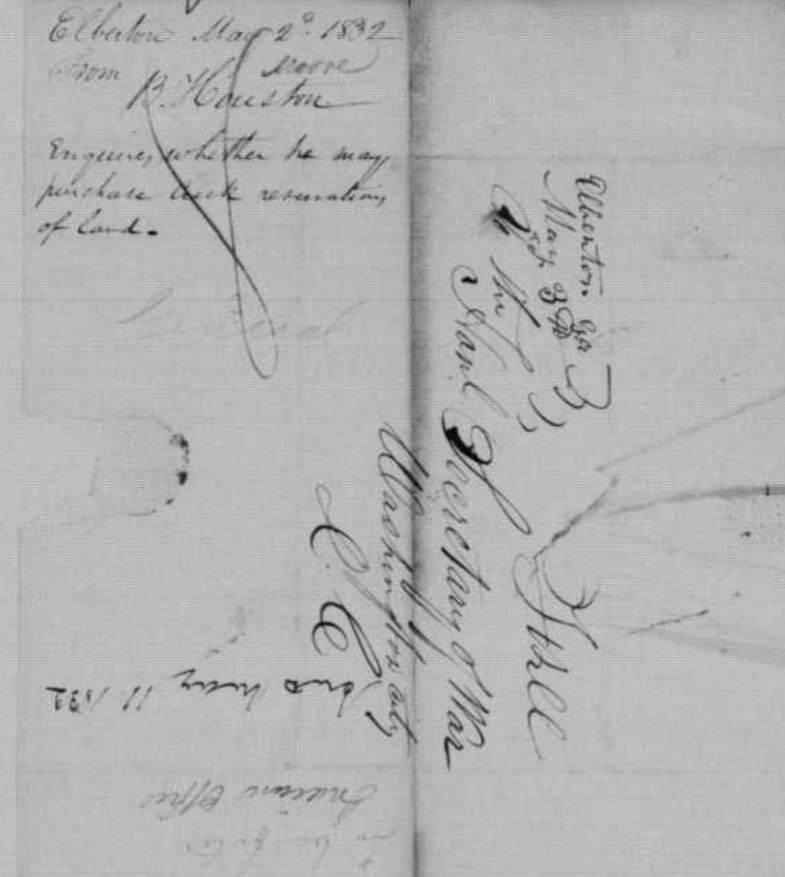 Elberton May 2d. 1832
from Moore
B. Houston
Enquires, whether he may
purchase reservations
of land.
General
Elberton Ga
May 3rd
To the
Honl Secretary of War
Washington City
Recd May 11 1832
Indian Office